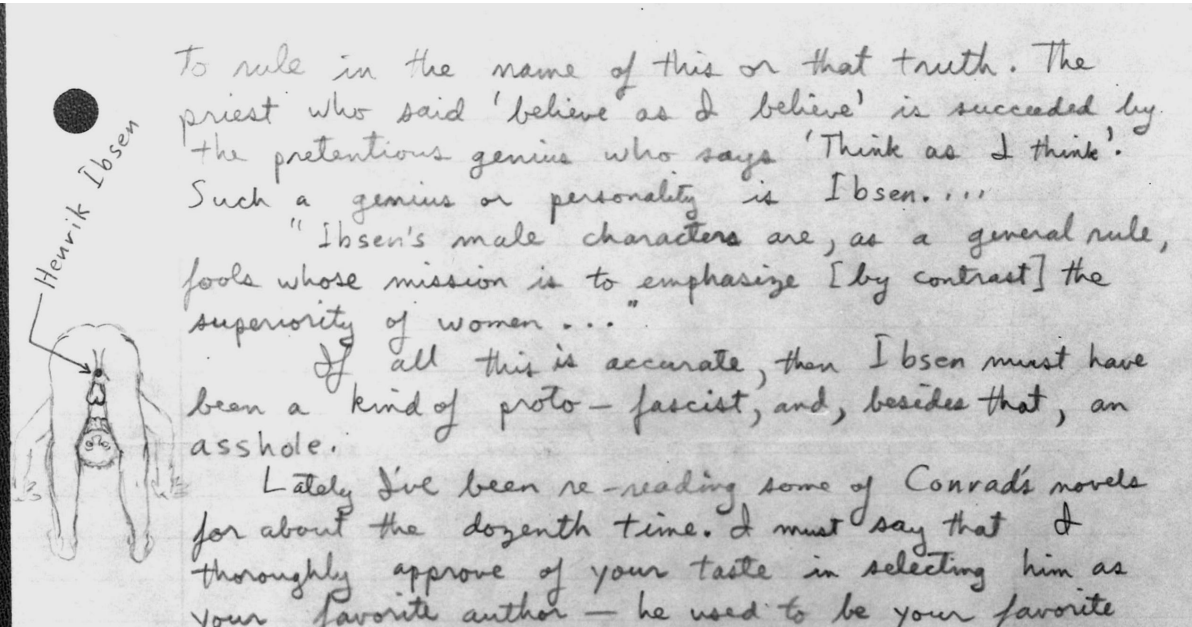 to rule in the name of this or that truth. The
priest who said 'believe as I believe' is succeeded by
the pretentious genius who says 'Think as I think'.
Such a genius or personality is Ibsen....
"Ibsen's male characters are, as a general rule,
fools whose mission is to emphasize [by contrast] the
superiority of women ..."
If all this is accurate, then Ibsen must have
been a kind of proto-fascist, and, besides that, an
asshole.
Lately I've been re-reading some of Conrad's novels
for about the dozenth time. I must say that I
thoroughly approve of your taste in selecting him as
your favorite author — he used to be your favorite
Henrik Ibsen